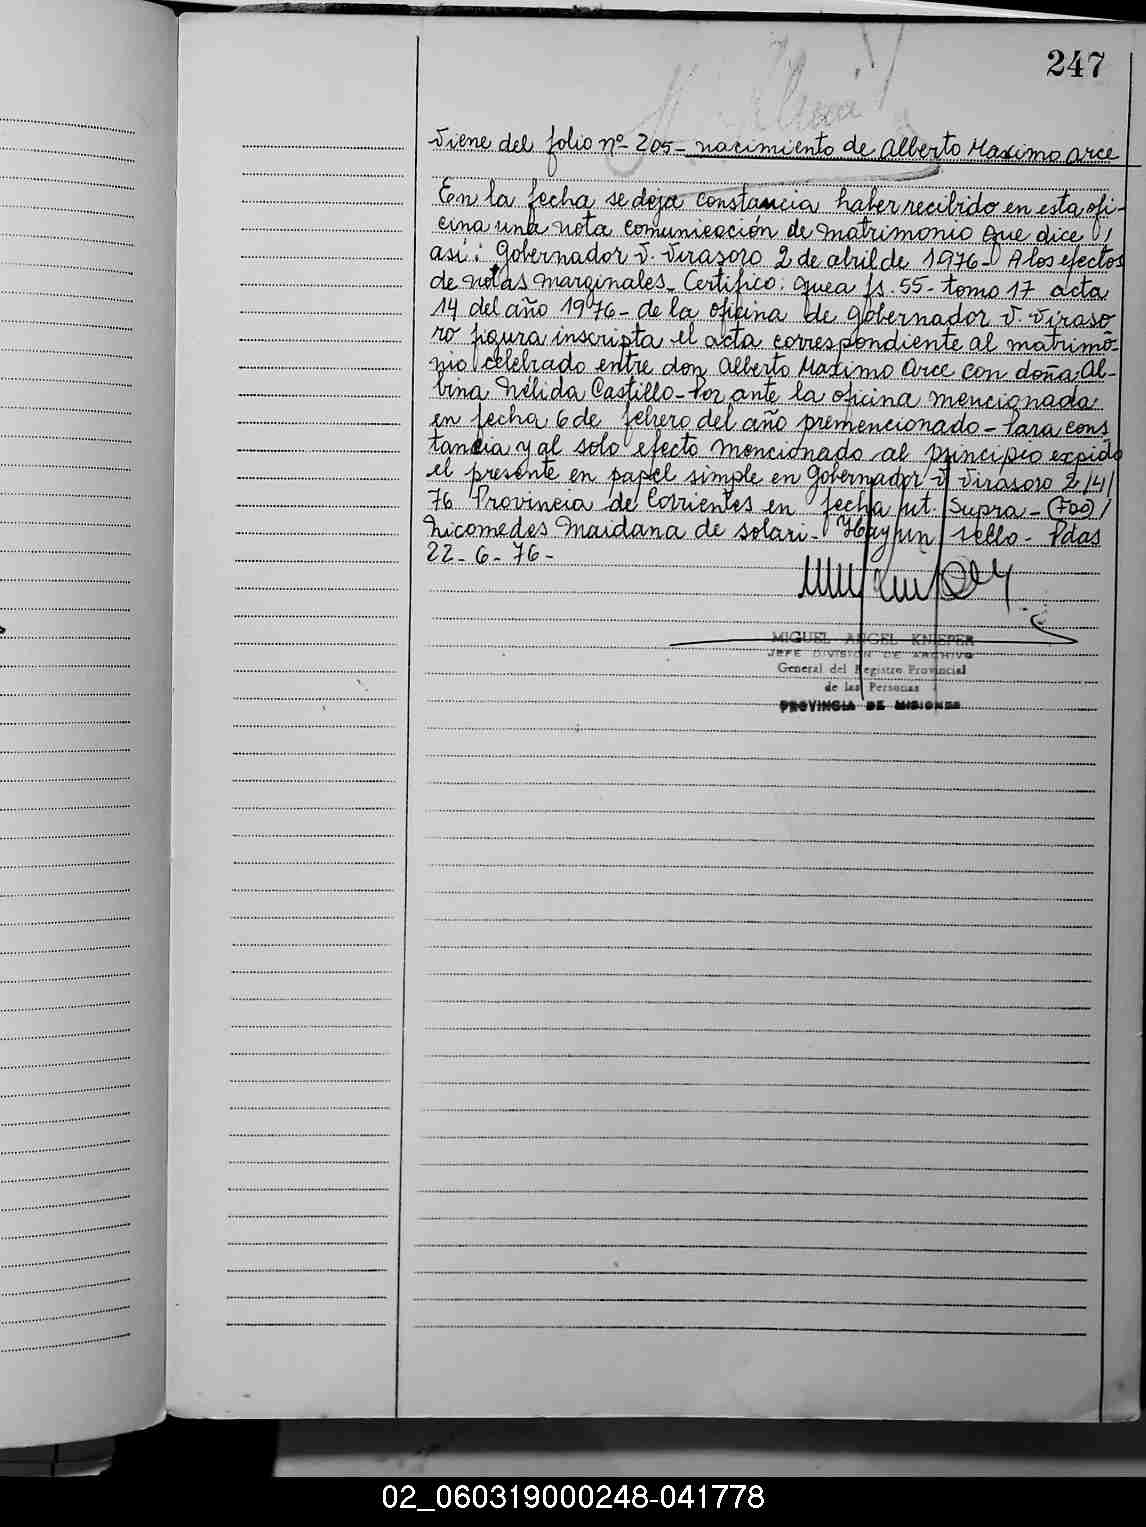 247
Viene del folio nº 205 - nacimiento de Alberto Maximo Arce
En la fecha se deja constancia haber recibido en esta ofi-
cina una nota comunicación de matrimonio que dice /
así: Gobernador V. Virasoro 2 de abril de 1976 - A los efectos
de notas marginales - Certifico: que a fs. 55 - tomo 17 acta
14 del año 1976 - de la oficina de Gobernador V. Viraso
ro figura inscripta el acta correspondiente al matrimo-
nio celebrado entre don Alberto Maximo Arce con doña Al-
bina Nélida Castillo - Por ante la oficina mencionada
en fecha 6 de febrero del año premencionado - Para cons
tancia y al solo efecto mencionado al principio expido
el presente en papel simple en Gobernador V. Virasoro 2/4/
76 Provincia de Corrientes en fecha ut. Supra - (Fdo) /
Nicomedes Maidana de Solari - Hay un sello - Pdas
22-6-76-
MIGUEL ANGEL KNIEPER
JEFE DIVISION DE ARCHIVO
General del Registro Provincial
de las Personas
PROVINCIA DE MISIONES
02_060319000248-041778